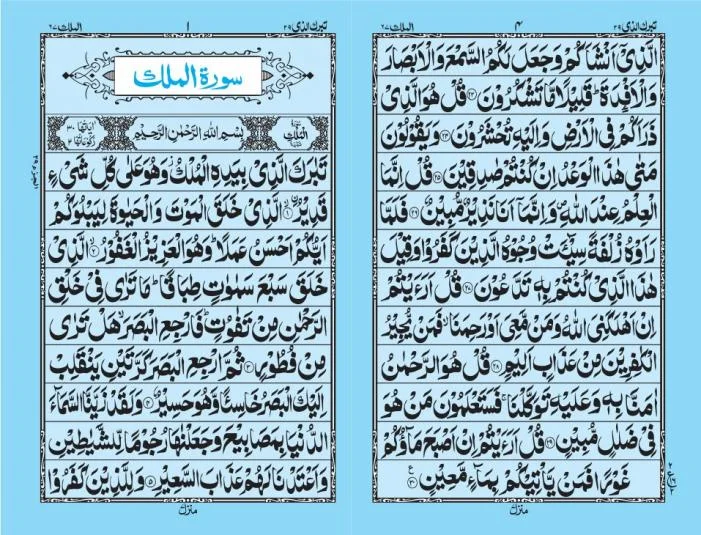 تبرك الذی ۲۹ ۱ الملك ۶۷
سورة الملك
سورة الملك مكية بِسْمِ اللهِ الرَّحْمٰنِ الرَّحِيْمِ اٰیاتها ۳۰ رکوعاتها ۲
تَبٰرَكَ الَّذِیْ بِیَدِهِ الْمُلْكُ وَهُوَ عَلٰی كُلِّ شَیْءٍ
قَدِیْرُ ۙ﴿۱﴾ الَّذِیْ خَلَقَ الْمَوْتَ وَ الْحَیٰوةَ لِیَبْلُوَكُمْ
اَیُّكُمْ اَحْسَنُ عَمَلًا ؕ وَهُوَ الْعَزِیْزُ الْغَفُوْرُ ۙ﴿۲﴾ الَّذِیْ
خَلَقَ سَبْعَ سَمٰوٰتٍ طِبَاقًا ؕ مَا تَرٰی فِیْ خَلْقِ
الرَّحْمٰنِ مِنْ تَفٰوُتٍ ؕ فَارْجِعِ الْبَصَرَ ۙ هَلْ تَرٰی
مِنْ فُطُوْرٍ ﴿۳﴾ ثُمَّ ارْجِعِ الْبَصَرَ كَرَّتَیْنِ یَنْقَلِبْ
اِلَیْكَ الْبَصَرُ خَاسِئًا وَّهُوَ حَسِیْرٌ ﴿۴﴾ وَلَقَدْ زَیَّنَّا السَّمَآءَ
الدُّنْیَا بِمَصَابِیْحَ وَجَعَلْنٰهَا رُجُوْمًا لِّلشَّیٰطِیْنِ
وَاَعْتَدْنَا لَهُمْ عَذَابَ السَّعِیْرِ ﴿۵﴾ وَلِلَّذِیْنَ كَفَرُوْا
منزل
تبرك الذی ۲۹ ۴ الملك ۶۷
الَّذِیْۤ اَنْشَاَكُمْ وَجَعَلَ لَكُمُ السَّمْعَ وَالْاَبْصَارَ
وَالْاَفْـِٕدَةَ ؕ قَلِیْلًا مَّا تَشْكُرُوْنَ ﴿۲۳﴾ قُلْ هُوَ الَّذِیْ
ذَرَاَكُمْ فِی الْاَرْضِ وَاِلَیْهِ تُحْشَرُوْنَ ﴿۲۴﴾ وَیَقُوْلُوْنَ
مَتٰی هٰذَا الْوَعْدُ اِنْ كُنْتُمْ صٰدِقِیْنَ ﴿۲۵﴾ قُلْ اِنَّمَا
الْعِلْمُ عِنْدَ اللهِ ۪ وَاِنَّمَاۤ اَنَا نَذِیْرٌ مُّبِیْنٌ ﴿۲۶﴾ فَلَمَّا
رَاَوْهُ زُلْفَةً سِیْٓـَٔتْ وُجُوْهُ الَّذِیْنَ كَفَرُوْا وَقِیْلَ
هٰذَا الَّذِیْ كُنْتُمْ بِهٖ تَدَّعُوْنَ ﴿۲۷﴾ قُلْ اَرَءَیْتُمْ
اِنْ اَهْلَكَنِیَ اللهُ وَمَنْ مَّعِیَ اَوْ رَحِمَنَا ۙ فَمَنْ یُّجِیْرُ
الْكٰفِرِیْنَ مِنْ عَذَابٍ اَلِیْمٍ ﴿۲۸﴾ قُلْ هُوَ الرَّحْمٰنُ
اٰمَنَّا بِهٖ وَعَلَیْهِ تَوَكَّلْنَا ۚ فَسَتَعْلَمُوْنَ مَنْ هُوَ
فِیْ ضَلٰلٍ مُّبِیْنٍ ﴿۲۹﴾ قُلْ اَرَءَیْتُمْ اِنْ اَصْبَحَ مَآؤُكُمْ
غَوْرًا فَمَنْ یَّاْتِیْكُمْ بِمَآءٍ مَّعِیْنٍ ﴿۳۰﴾
منزل